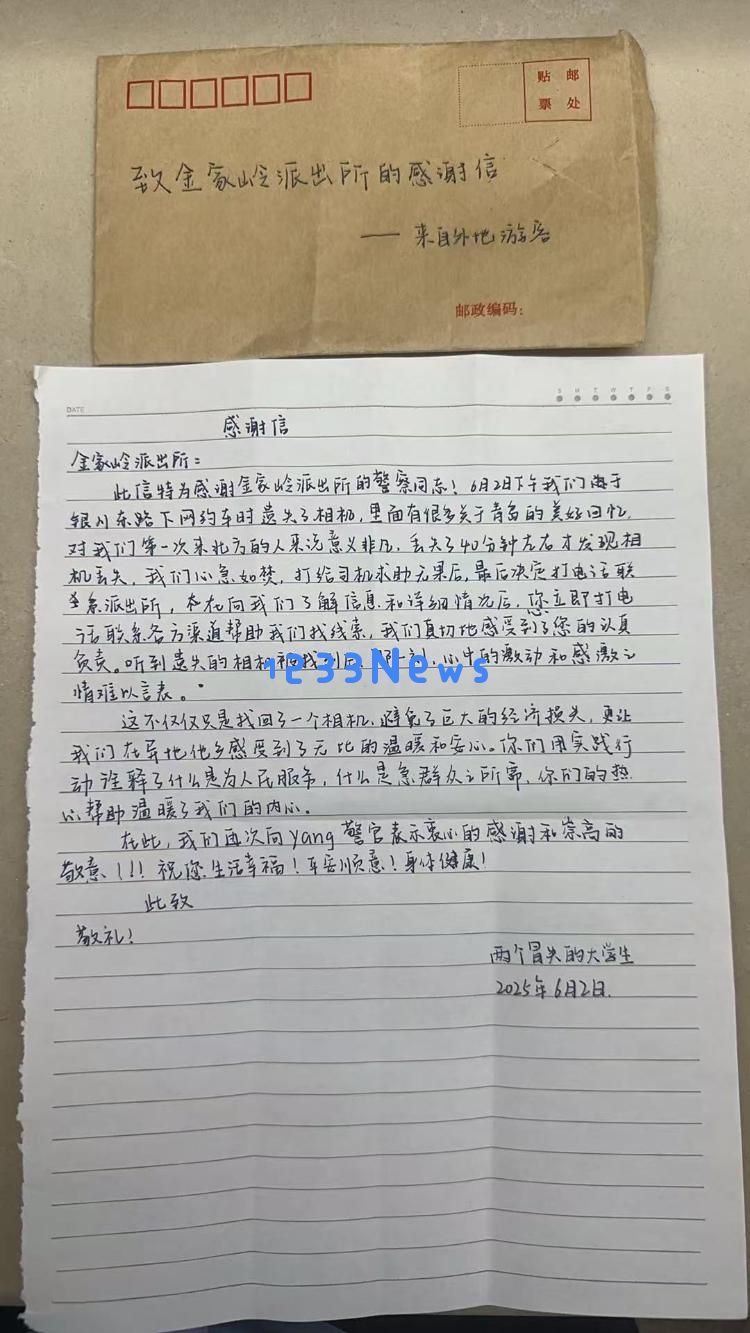 贴 邮
票 处
致金家岭派出所的感谢信
—— 来自外地游客
邮政编码:
DATE
S M T W T F S
感谢信
金家岭派出所:
此信特为感谢金家岭派出所的警察同志!6月2日下午我们
银川东路下网约车时遗失了相机,里面有很多关于青岛的美好回忆.
对我们第一次来北方的人来说意义非凡,丢失了40分钟左右才发现相
机丢失,我们心急如焚,打给司机求助无果后,最后决定打电话联
系派出所,在向我们了解信息和详细情况后,您立即打电
话联系各方渠道帮助我们找线索,我们真切地感受到了您的认真
负责。听到遗失的相机被找到后 那一刻,心中的激动和感激之
1E33News
情难以言表。
这不仅仅只是找回了一个相机,避免了巨大的经济损失,更让
我们在异地他乡感受到了无比的温暖和安心。你们用实践行
动诠释了什么是为人民服务,什么是急群众之所需,你们的热
心帮助温暖了我们的内心。
在此,我们再次向yang警官表示衷心的感谢和崇高的
敬意!!!祝您生活幸福!平安顺意!身体健康!
此致
敬礼!
两个冒失的大学生
2025年6月2日.